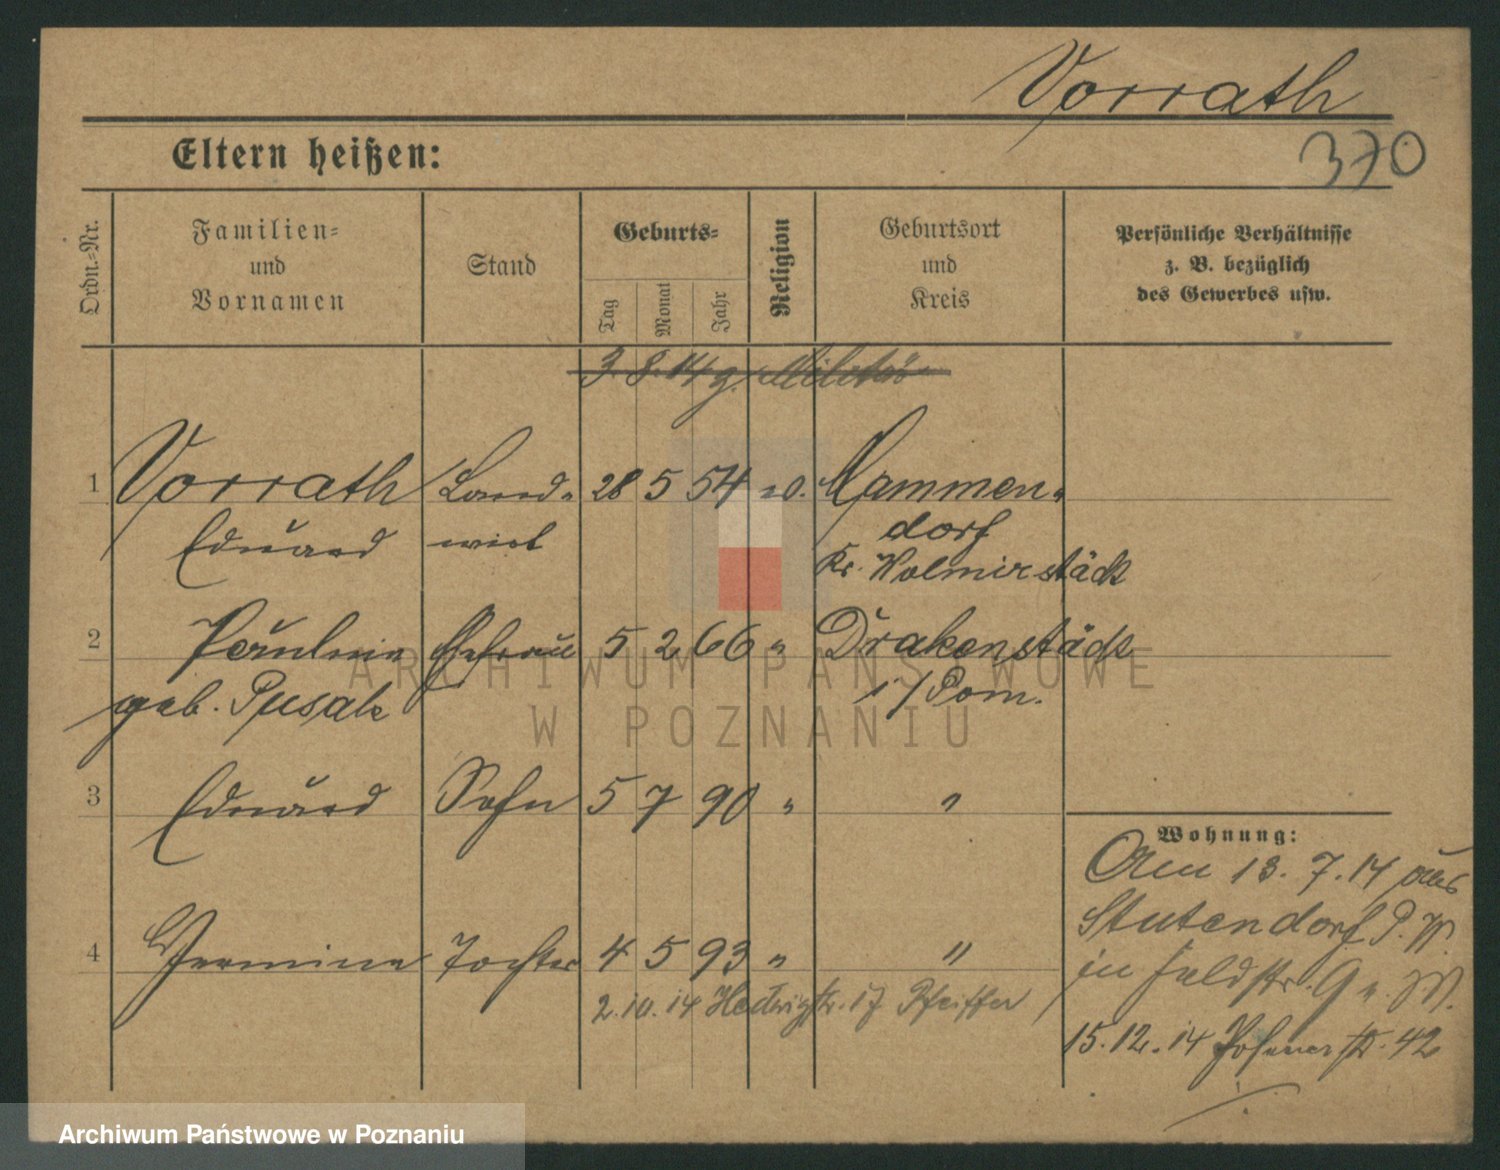 Vorrath
370
Eltern heißen:
Ordn.-Nr.
Familien-
und
Vornamen
Stand
Geburts-
Tag
Monat
Jahr
Religion
Geburtsort
und
Kreis
Persönliche Verhältnisse
z. B. bezüglich
des Gewerbes usw.
3. 8. 14 g. Militär
1 Vorrath Land- 28 5 54 Mammen-
Eduard wirt dorf
Kr. Wolmirstädt
2 Pauline Ehefrau 5 2 66 " Drakenstädt
geb. Pusale i/Pom.
3 Eduard Sohn 5 7 90 " "
Wohnung:
Am 13. 7. 14 aus
Stutendorf P. W.
in Feldstr. 9 v. W.
4 Hermine Tochter 4 5 93 " "
2. 10. 14 Hedwigstr. 17 Pfeiffer
15. 12. 14 Posenerstr. 42
ARCHIWUM PAŃSTWOWE
W POZNANIU
Archiwum Państwowe w Poznaniu